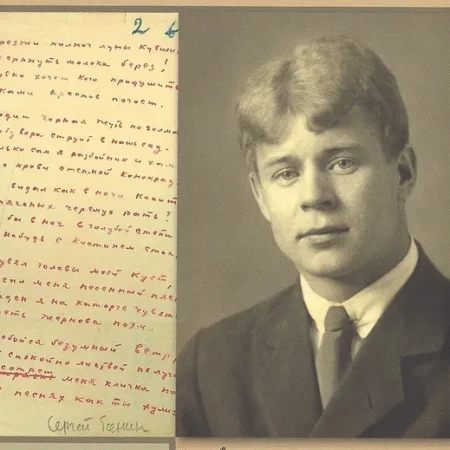 2
полноч луны кувши
зерпнуть молока берез!
овно хочет кого придушить
ками крестов погост.
одит черная жуть по холма
обу вора струит в наш саду.
лько сам я разбойник и хам
о крови степной конокрад
видал как в ночи кипит
пяченых черемух рать?
бы в ноч в голубой степи
нибудь с кистенем стоя
увял головы моей куст,
сал меня песенный плен
ден я на каторге чувств
теть жернова поэм.
бойся безумный ветр,
спокойно листвой по луга
сотрет меня кличка по
песнях как ты хулиг
Сергей Есенин